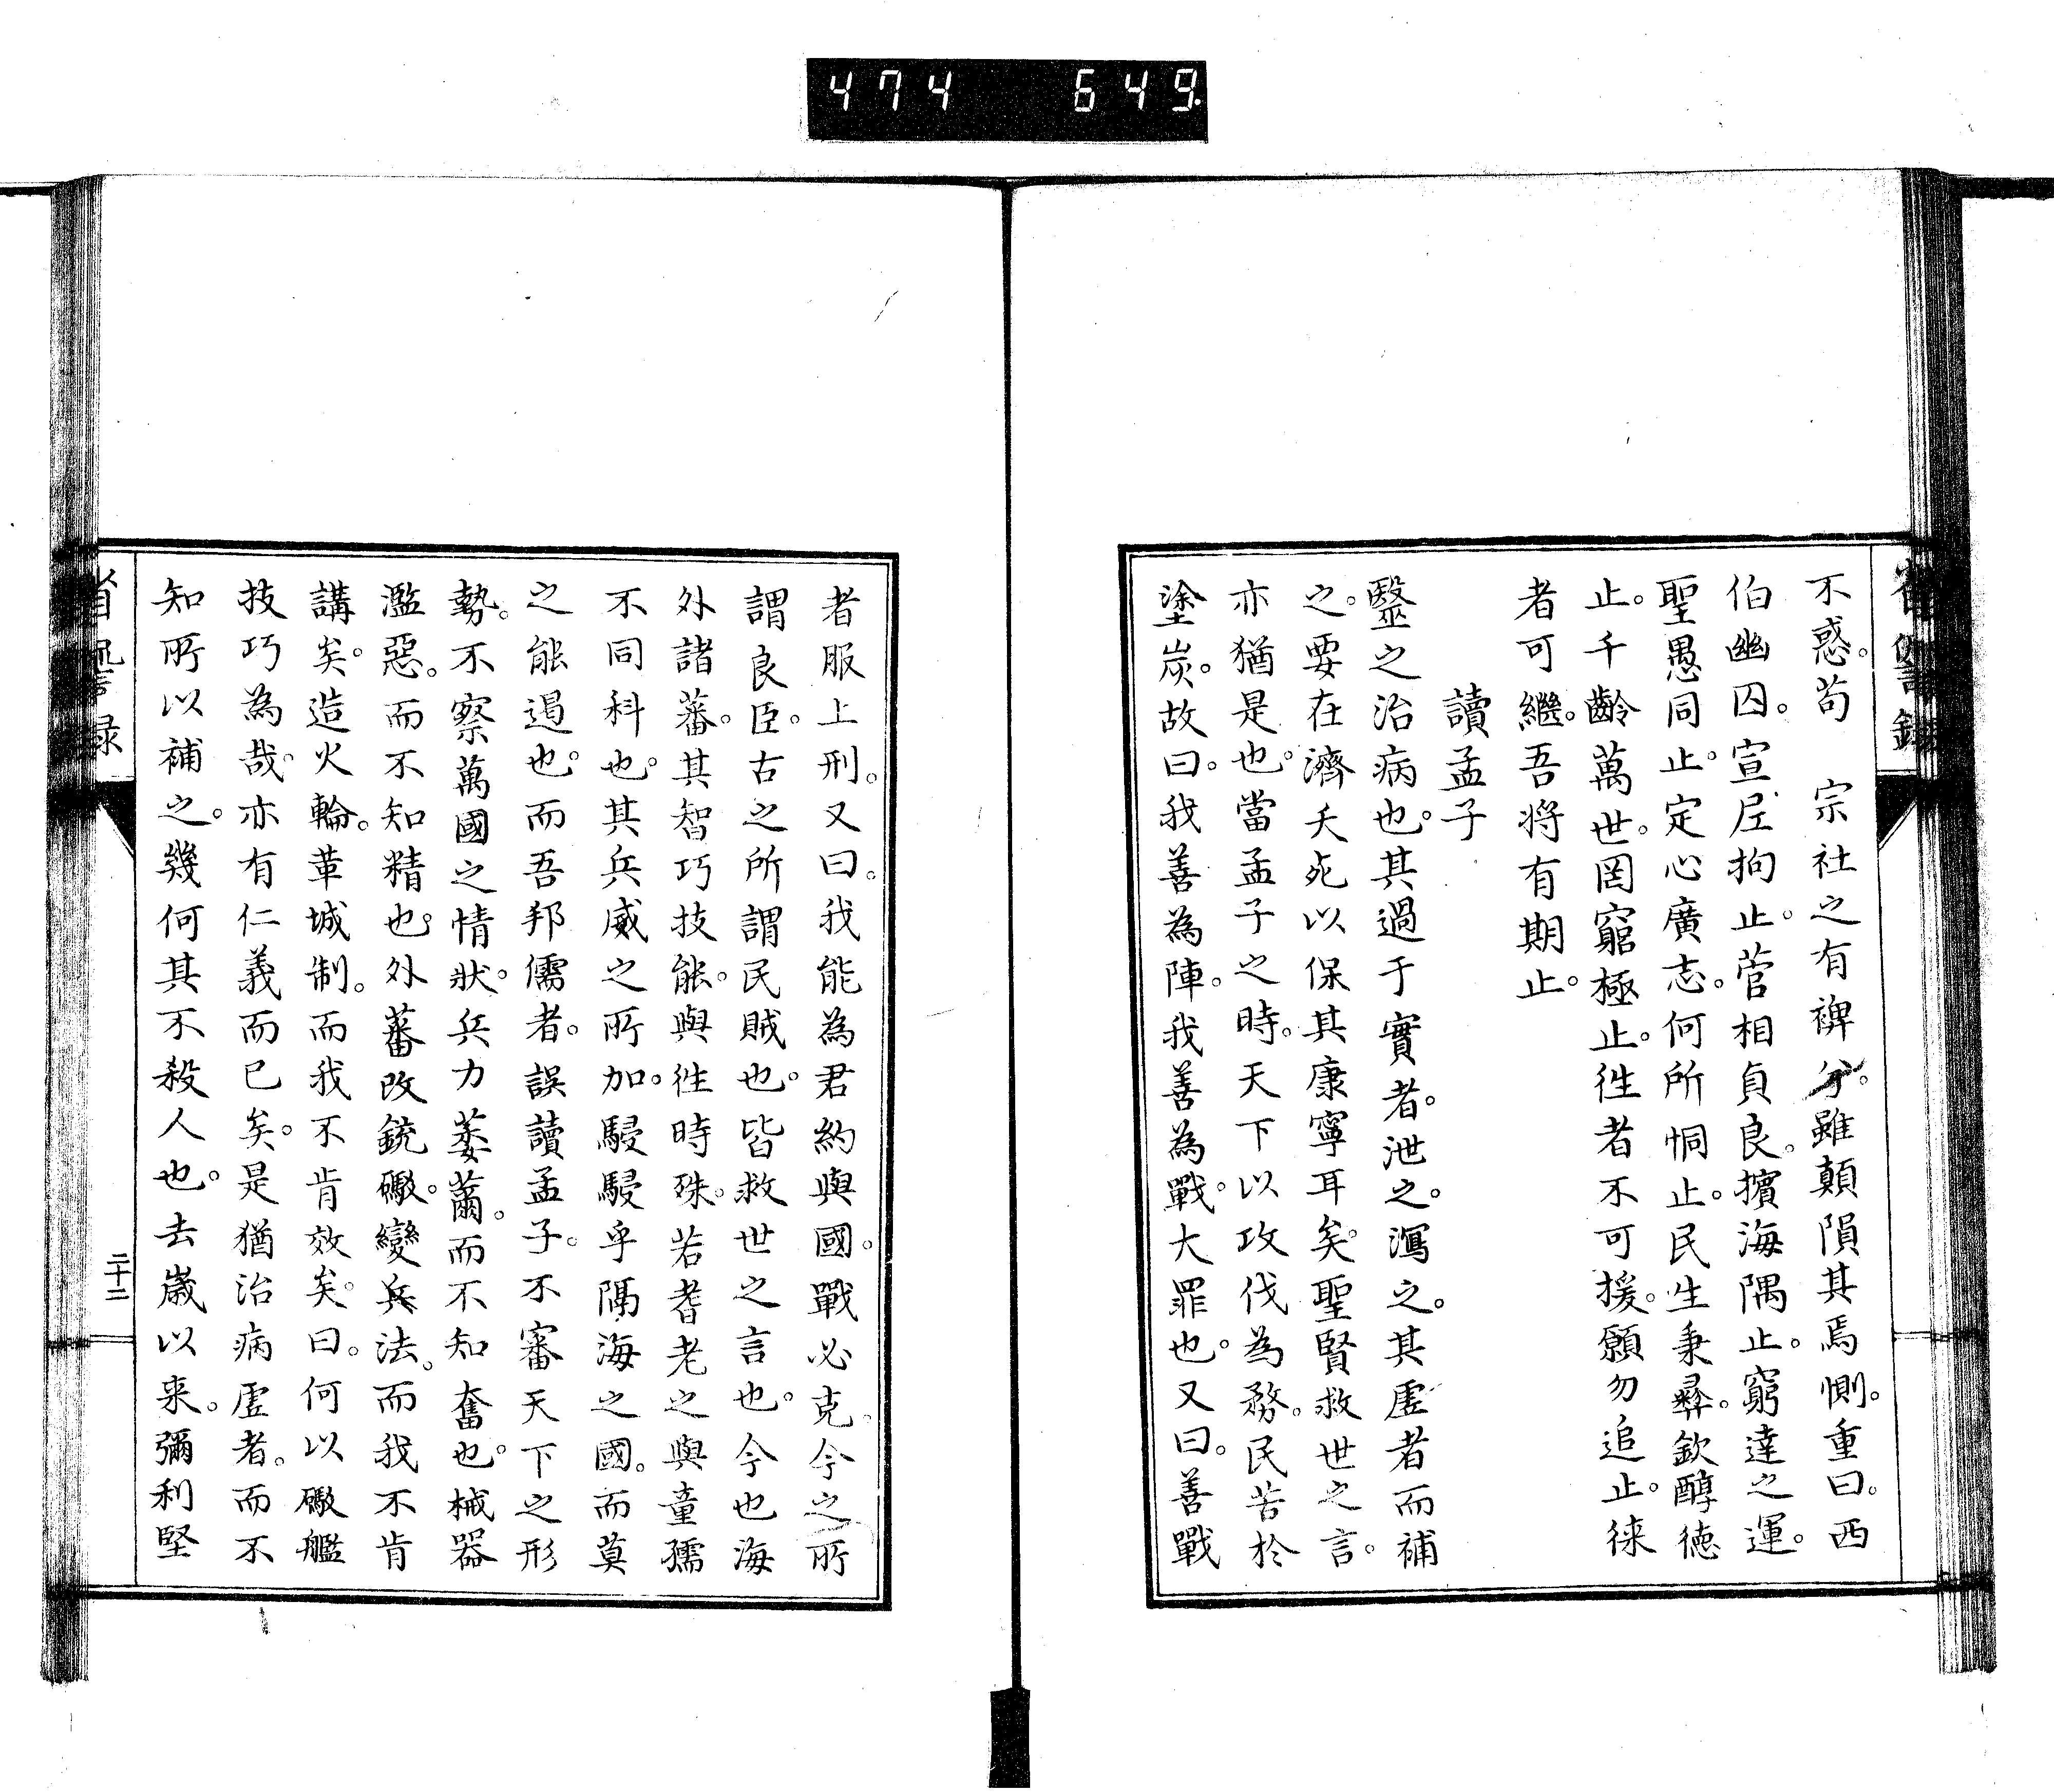 474 649
省諐録
不惑。苟　宗社之有裨兮。雖顛隕其焉惻。重曰。西
伯幽囚。宣尼拘止。菅相貞良。擯海隅止。窮達之運。
聖愚同止。定心廣志。何所恫止。民生秉彝。欽醇徳
止。千齡萬世。罔窮極止。徃者不可援。願勿追止。徠
者可繼。吾将有期止。
讀孟子
醫之治病也。其過于實者。泄之。瀉之。其虚者而補
之。要在濟夭死以保其康寧耳矣。聖賢救世之言。
亦猶是也。當孟子之時。天下以攻伐為務。民苦於
塗炭。故曰。我善為陣。我善為戰。大罪也。又曰。善戰
者服上刑。又曰。我能為君約與國。戰必克。今之所
謂良臣。古之所謂民賊也。皆救世之言也。今也海
外諸蕃。其智巧技能。與徃時殊。若耆老之與童孺
不同科也。其兵威之所加。駸駸乎隔海之國。而莫
之能遏也。而吾邦儒者。誤讀孟子。不審天下之形
勢。不察萬國之情狀。兵力萎薾。而不知奮也。械器
濫惡。而不知精也。外蕃改銃礮。變兵法。而我不肯
講矣。造火輪。革城制。而我不肯效矣。曰。何以礮艦
技巧為哉。亦有仁義而已矣。是猶治病虚者。而不
知所以補之。幾何其不殺人也。去歳以来。彌利堅
省諐録
二十二